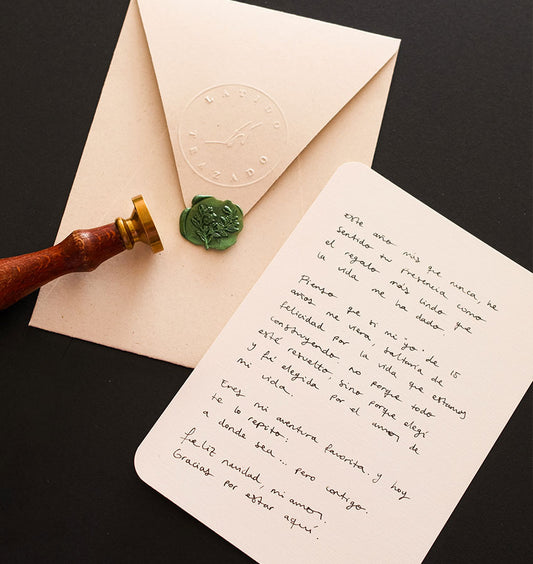 LATIDO
TRAZADO
Este año más que nunca, he
sentido tu presencia como
el regalo más lindo que
la vida me ha dado.
Pienso que si mi "yo" de 15
años me viera, saltaría de
felicidad por la vida que estamos
construyendo. no porque todo
esté resuelto, sino porque elegí
y fui elegida por el amor de
mi vida.
Eres mi aventura favorita. y hoy
te lo repito:
a donde sea... pero contigo.
Feliz navidad, mi amor.
Gracias por estar aquí.